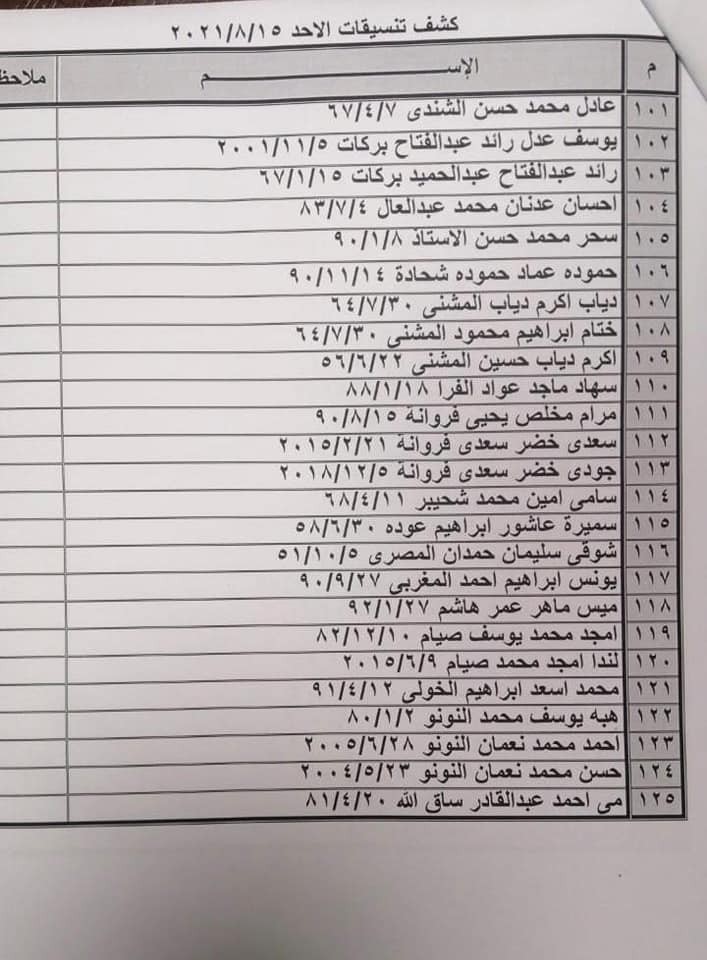 كشف تنسيقات الاحد ٢٠٢١/٨/١٥
م الإســـم ملاحظ
١٠١ عادل محمد حسن الشندى ٦٧/٤/٧
١٠٢ يوسف عدل رائد عبدالفتاح بركات ٢٠٠١/١١/٥
١٠٣ رائد عبدالفتاح عبدالحميد بركات ٦٧/١/١٥
١٠٤ احسان عدنان محمد عبدالعال ٨٣/٧/٤
١٠٥ سحر محمد حسن الاستاذ ٩٠/١/٨
١٠٦ حموده عماد حموده شحادة ٩٠/١١/١٤
١٠٧ دياب اكرم دياب المشنى ٦٤/٧/٣٠
١٠٨ ختام ابراهيم محمود المشنى ٦٤/٧/٣٠
١٠٩ اكرم دياب حسين المشنى ٥٦/٦/٢٢
١١٠ سهاد ماجد عواد الفرا ٨٨/١/١٨
١١١ مرام مخلص يحيى فروانة ٩٠/٨/١٥
١١٢ سعدى خضر سعدى فروانة ٢٠١٥/٢/٢١
١١٣ جودى خضر سعدى فروانة ٢٠١٨/١٢/٥
١١٤ سامى امين محمد شحيبر ٦٨/٤/١١
١١٥ سميرة عاشور ابراهيم عوده ٥٨/٦/٣٠
١١٦ شوقى سليمان حمدان المصرى ٥١/١٠/٥
١١٧ يونس ابراهيم احمد المغربى ٩٠/٩/٢٧
١١٨ ميس ماهر عمر هاشم ٩٢/١/٢٧
١١٩ امجد محمد يوسف صيام ٨٢/١٢/١٠
١٢٠ لندا امجد محمد صيام ٢٠١٥/٦/٩
١٢١ محمد اسعد ابراهيم الخولى ٩١/٤/١٢
١٢٢ هبه يوسف محمد النونو ٨٠/١/٢
١٢٣ احمد محمد نعمان النونو ٢٠٠٥/٦/٢٨
١٢٤ حسن محمد نعمان النونو ٢٠٠٤/٥/٢٣
١٢٥ مى احمد عبدالقادر ساق الله ٨١/٤/٢٠